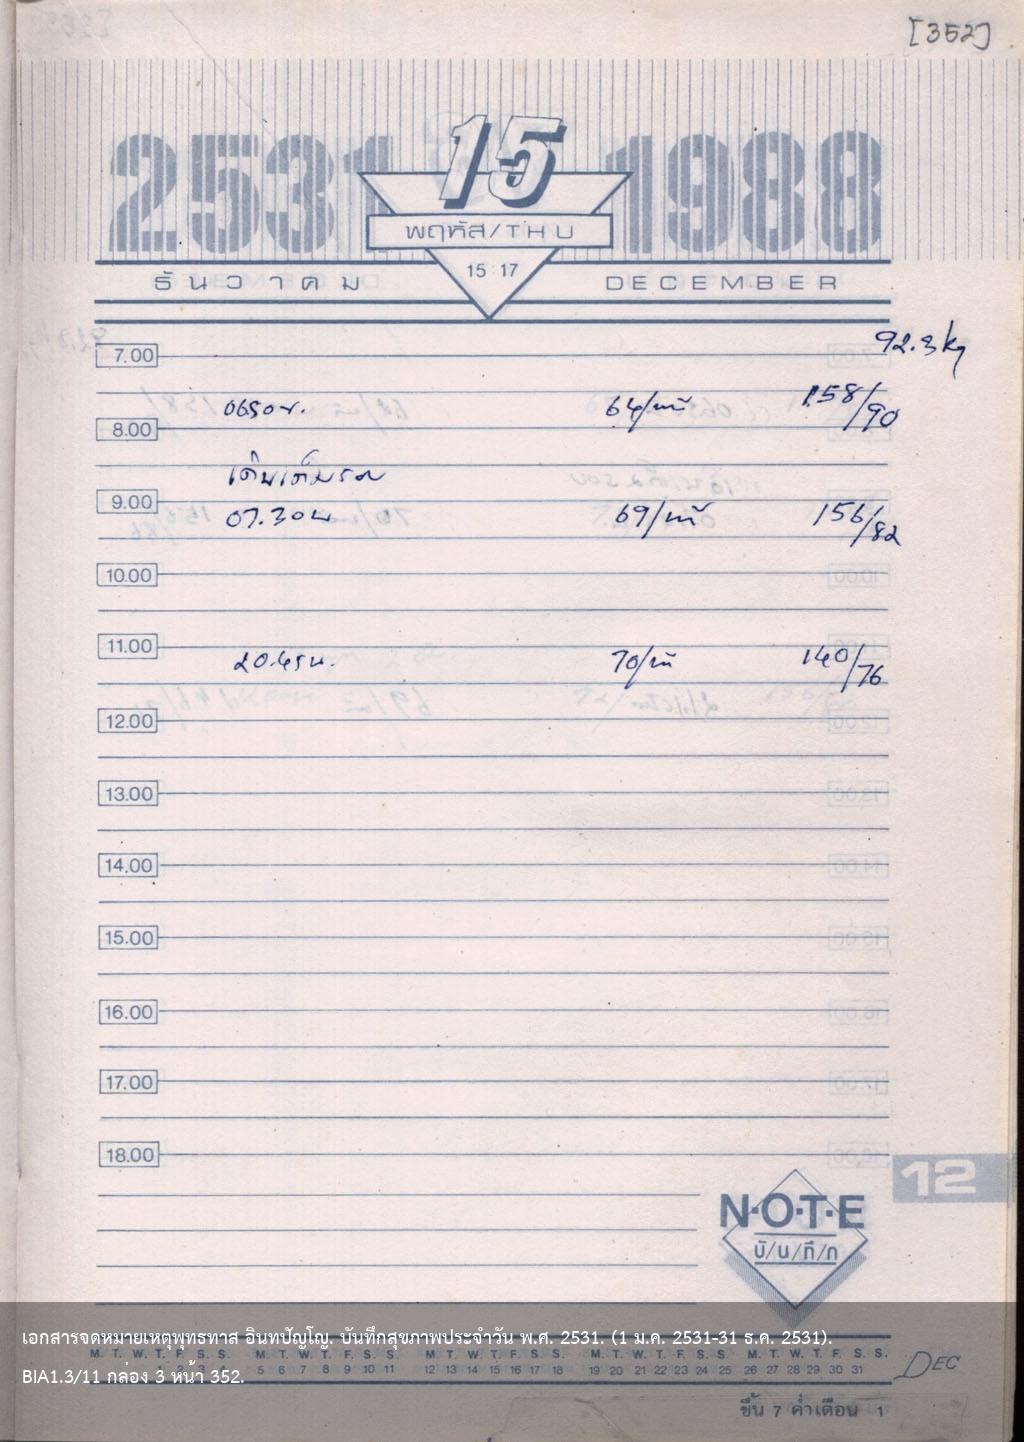 [352]
2531 15 1988
พฤหัส/THU
15 17
ธันวาคม DECEMBER
92.3 kg
7.00
0650 น. 64/นาที 158/90
8.00
เดินเต็มรอบ
9.00
07.30 น 69/นาที 156/82
10.00
11.00
20.45 น. 70/นาที 140/76
12.00
13.00
14.00
15.00
16.00
17.00
18.00
12
N·O·T·E
บั/น/ทึ/ก
เอกสารจดหมายเหตุพุทธทาส อินทปัญโญ. บันทึกสุขภาพประจำวัน พ.ศ. 2531. (1 ม.ค. 2531-31 ธ.ค. 2531).
M. T. W. T. F. S. S. M. T. W. T. F. S. S. M. T. W. T. F. S. S. M. T. W. T. F. S. S. M. T. W. T. F. S. S.
1 2 3 4 5 6 7 8 9 10 11 12 13 14 15 16 17 18 19 20 21 22 23 24 25 26 27 28 29 30 31
DEC
BIA1.3/11 กล่อง 3 หน้า 352.
ขึ้น 7 ค่ำเดือน 1